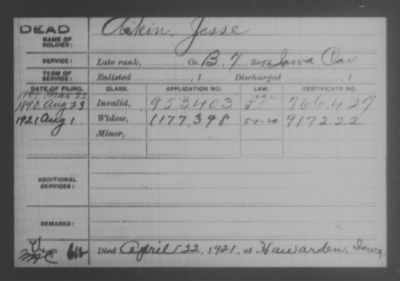 DEAD
NAME OF SOLDIER: Aikin, Jesse
SERVICE: Late rank, Co. B. 7 Reg. Iowa Cav
TERM OF SERVICE: Enlisted , 1 Discharged , 1
DATE OF FILING. CLASS. APPLICATION NO. LAW. CERTIFICATE NO.
1890 Aug 23 Invalid, 953403 766.427
1921 Aug 1 Widow, 1177.398 917222
Minor,
ADDITIONAL SERVICES:
REMARKS:
Died April 22, 1921, at Hawarden, Iowa.